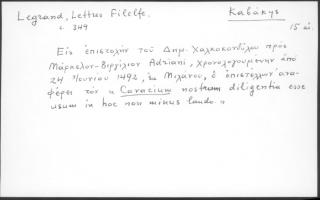 Legrand, Lettres Filelfe.
Καβάκης
σ. 349
15 αἰ.
Εἰς ἐπιστολὴν τοῦ Δημ. Χαλκοκονδύλου πρὸς
Μάρκελον-Βιργίλιον Adriani, χρονολογουμένην ἀπὸ
24 Ἰουνίου 1492, ἐκ Μιλάνου, ὁ ἐπιστέλλων ἀνα-
φέρει τὸν « Cavacium nostrum diligentia esse
usum in hoc non minus laudo. »